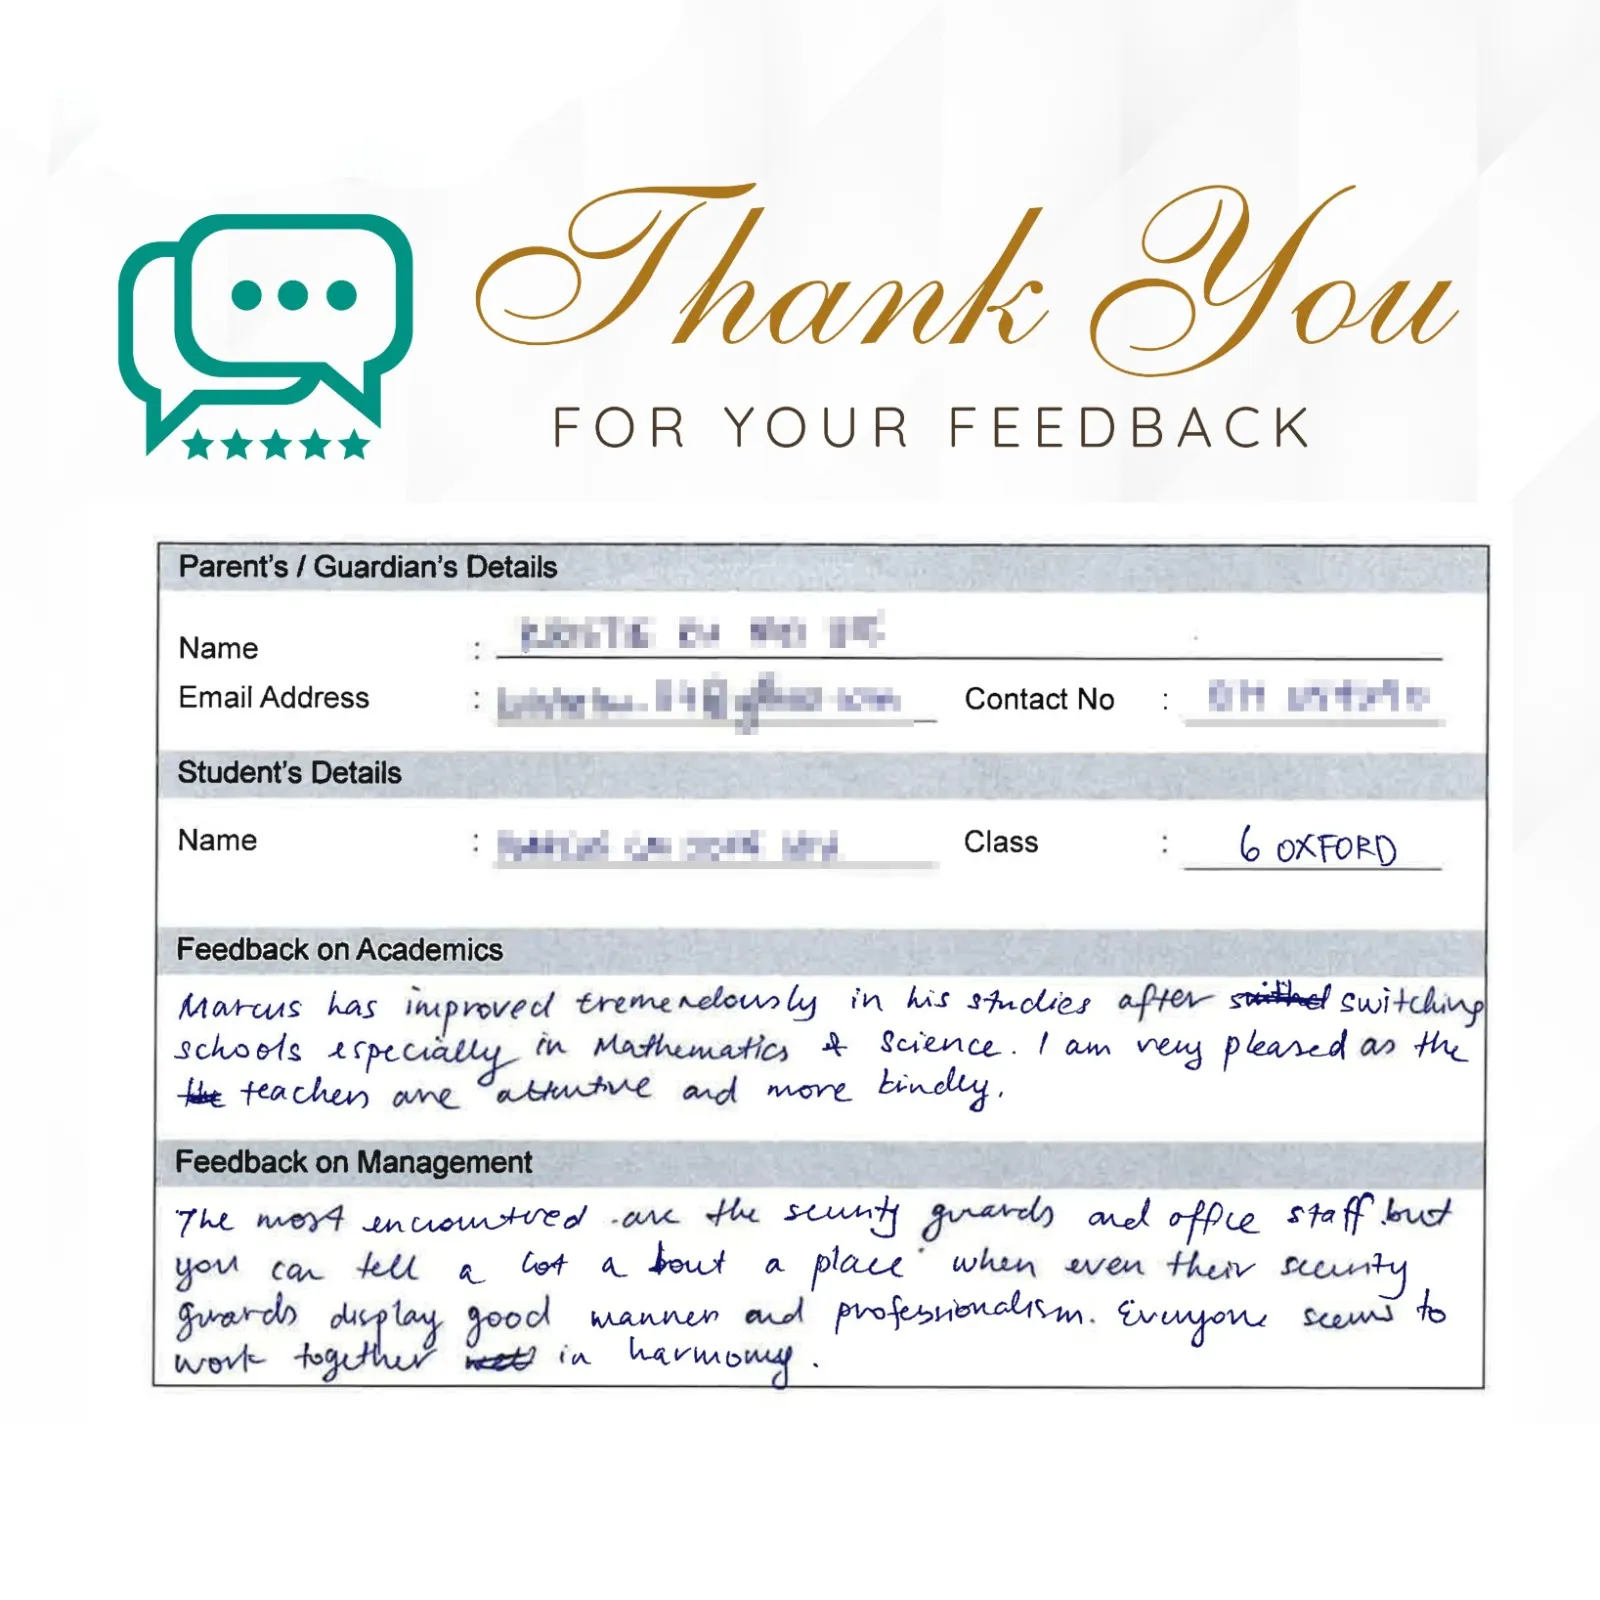 Thank You
FOR YOUR FEEDBACK
Parent's / Guardian's Details
Name :
Email Address : Contact No :
Student's Details
Name : Class : 6 OXFORD
Feedback on Academics
Marcus has improved tremendously in his studies after switching
schools especially in Mathematics & Science. I am very pleased as the
teachers are attentive and more kindly.
Feedback on Management
The most encountered are the security guards and office staff but
you can tell a lot a bout a place when even their security
guards display good manner and professionalism. Everyone seems to
work together in harmony.